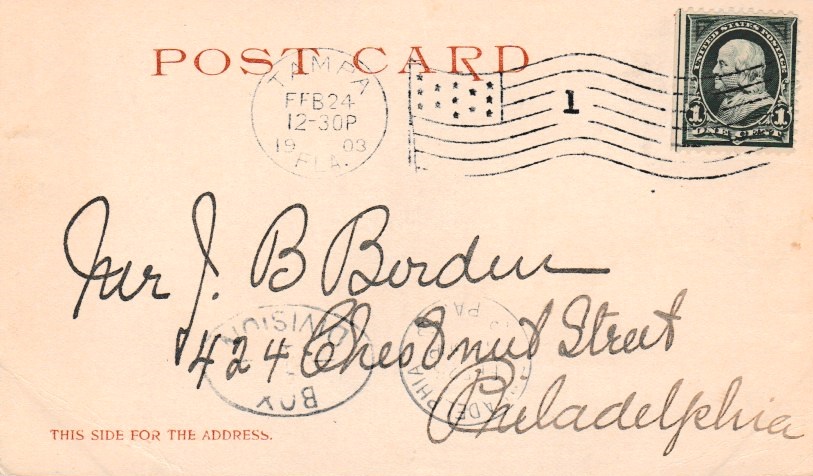 POST CARD
TAMPA
FEB 24
12-30P
19 03
FLA.
1
UNITED STATES POSTAGE
1 1
ONE CENT
Mr J. B Borden
424 Chestnut Street
Philadelphia
BOX
DIVISION
PHILADELPHIA PA
THIS SIDE FOR THE ADDRESS.